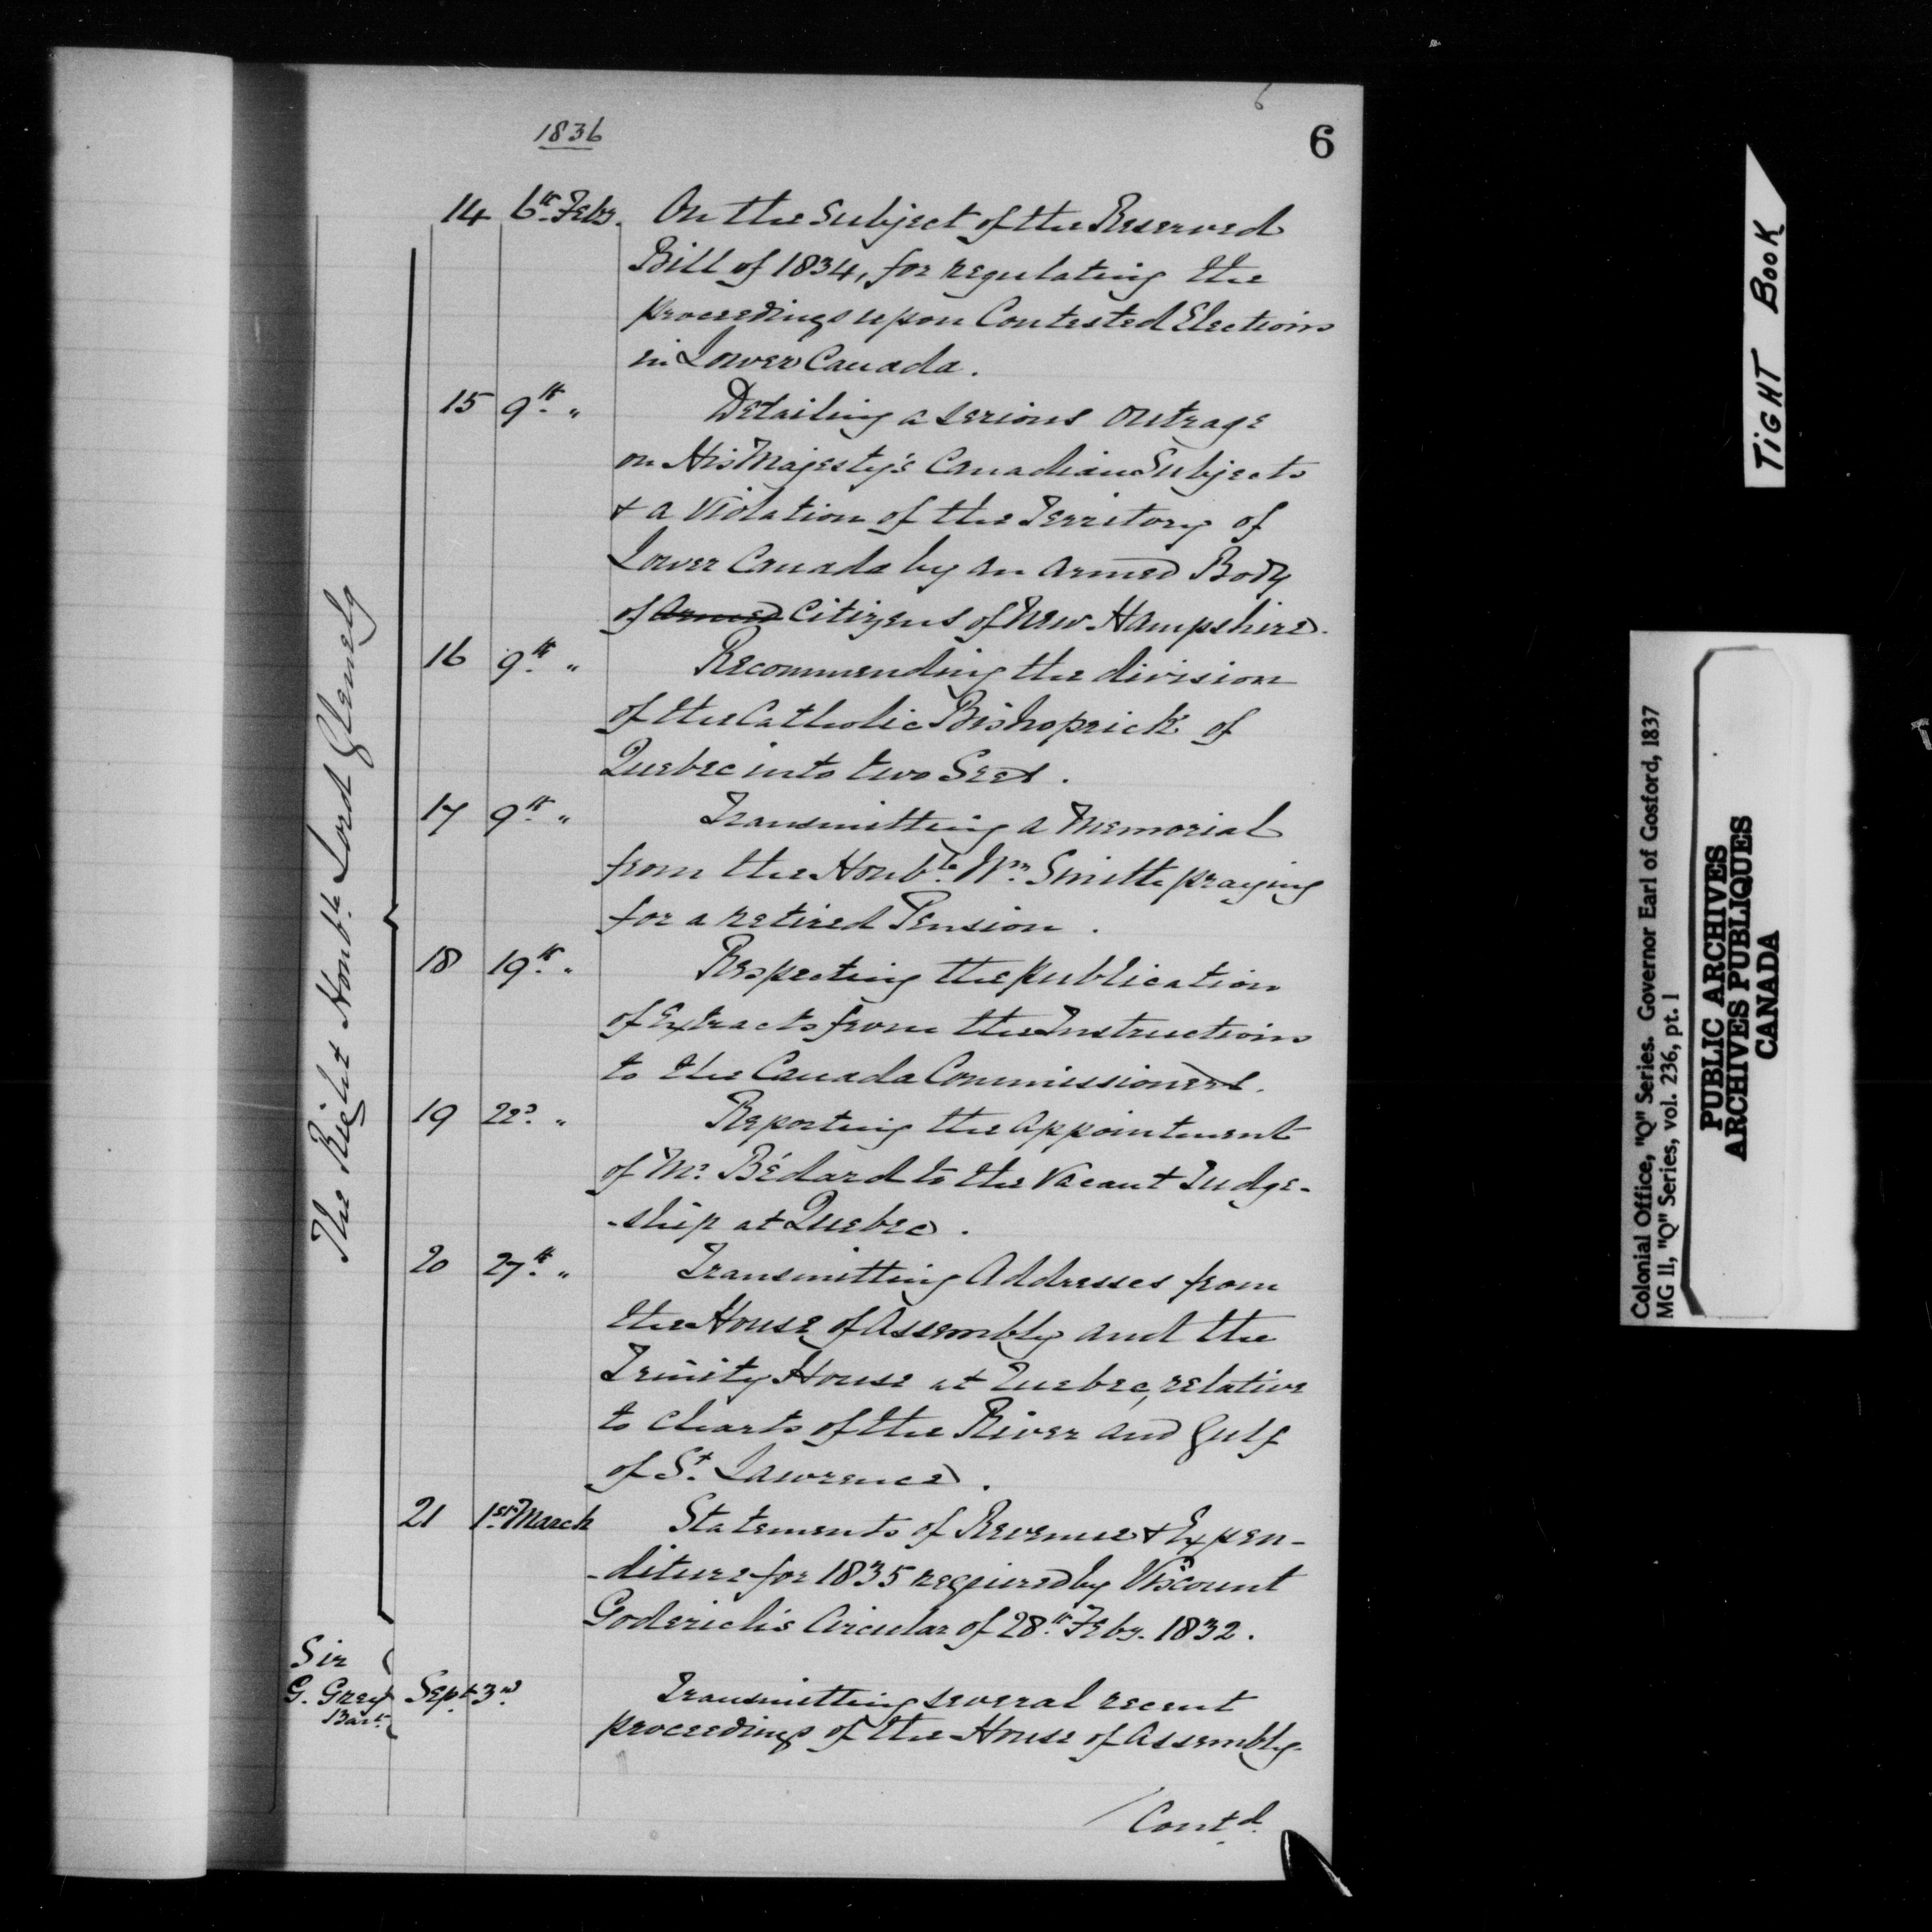 6
1836
6
The Right Honble. Lord Glenelg
14 6th Feby. On the Subject of the Reserved
Bill of 1834, for regulating the
proceedings upon Contested Elections
in Lower Canada.
15 9th " Detailing a serious outrage
on His Majesty's Canadian Subjects
+ a Violation of the Territory of
Lower Canada by an armed Body
of armed Citizens of New Hampshire.
16 9th " Recommending the division
of the Catholic Bishoprick of
Quebec into two Sees.
17 9th " Transmitting a Memorial
from the Honble. Wm. Smith praying
for a retired Pension.
18 19th " Respecting the publication
of Extracts from the Instructions
to the Canada Commissioners.
19 22d " Reporting the appointment
of Mr. Bédard to the Vacant Judge-
-ship at Quebec.
20 27th " Transmitting Addresses from
the House of Assembly and the
Trinity House at Quebec, relative
to Charts of the River and Gulf
of St. Lawrence.
21 1st March Statements of Revenue + Expen-
-diture for 1835 required by Viscount
Goderich's Circular of 28th Feby. 1832.
Sir
G. Grey
Bart.
Sept 3rd. Transmitting several recent
proceedings of the House of Assembly
/Contd.
TIGHT BOOK
Colonial Office, "Q" Series. Governor Earl of Gosford, 1837
MG 11, "Q" Series, vol. 236, pt. 1
PUBLIC ARCHIVES
ARCHIVES PUBLIQUES
CANADA